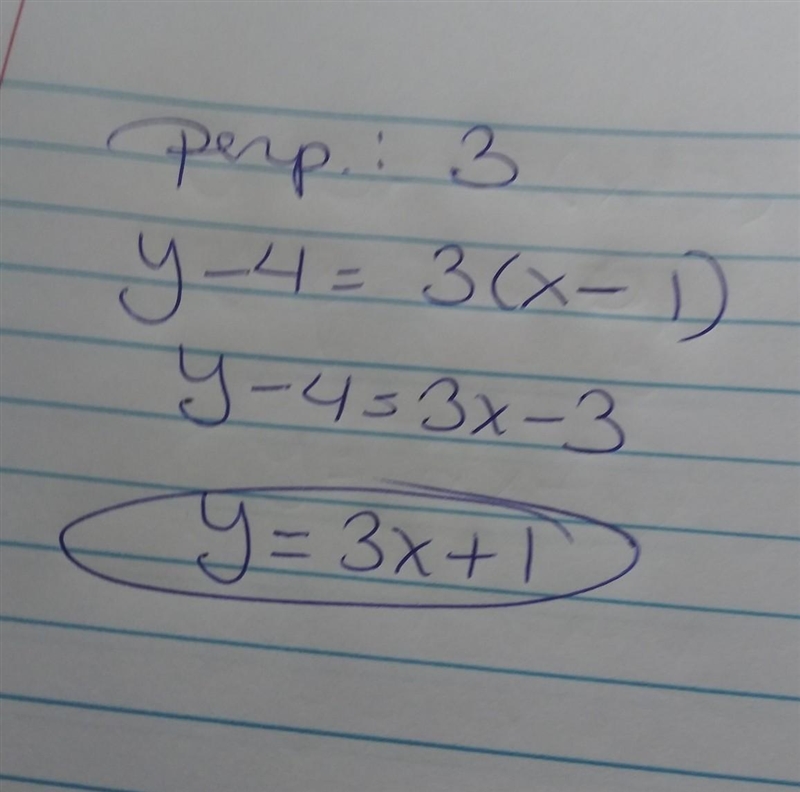 perp.: 3
y-4= 3(x-1)
y-4=3x-3
y=3x+1